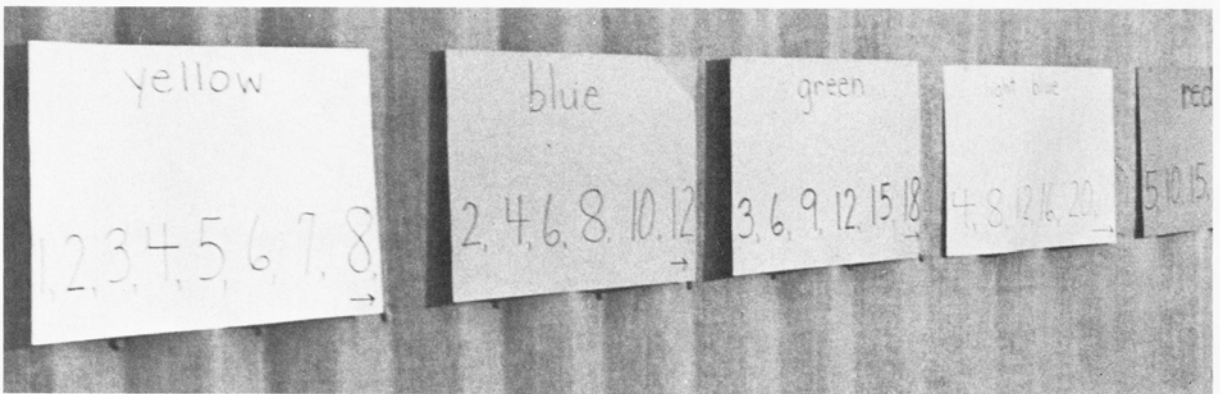 yellow
1, 2, 3, 4, 5, 6, 7, 8,
→
blue
2, 4, 6, 8, 10, 12
→
green
3, 6, 9, 12, 15, 18
→
light blue
4, 8, 12, 16, 20,
→
red
5, 10, 15,